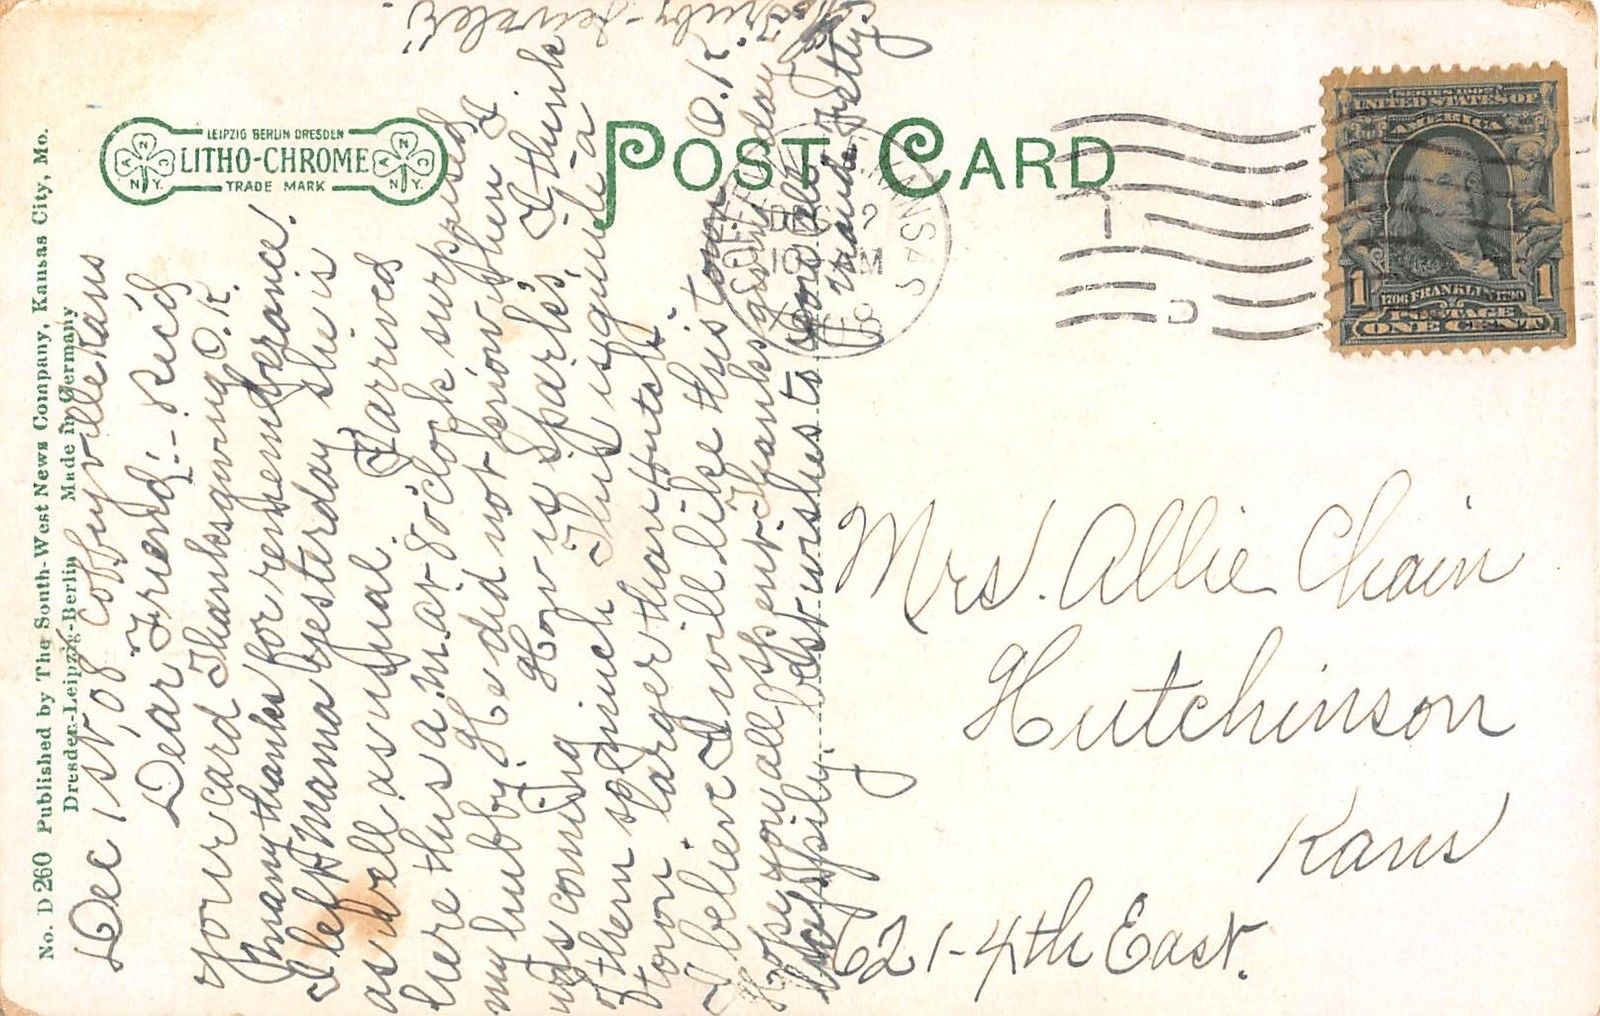 No. D 260 Published by The South-West News Company, Kansas City, Mo.
Dresden-Leipzig-Berlin Made in Germany
LEIPZIG BERLIN DRESDEN
LITHO-CHROME
TRADE MARK
A N C N.Y.
A N C N.Y.
POST CARD
DEC 2
10 AM
KANSAS
D
SERIES 1902
UNITED STATES OF
AMERICA
1 1706 FRANKLIN 1790 1
POSTAGE
ONE CENT
Dec 1st, '08 Coffeyville Kans
Dear Friend:- Rec'd
your card Thanksgiving O.K.
Many thanks for rememberance.
I left Mama yesterday she is
as well as usual. I arrived
here this a.m. at 8 o'clock surprised
my hubby. He did not know when I
was coming. How is Sparks, I think
of them so much. This is quite a
town larger than Hutch.
I believe I will like this town O.K.
Hope you all spent Thanksgiving day
happily. best wishes to you all
Mrs. Allie Chain
Hutchinson
Kans
621-4th East.